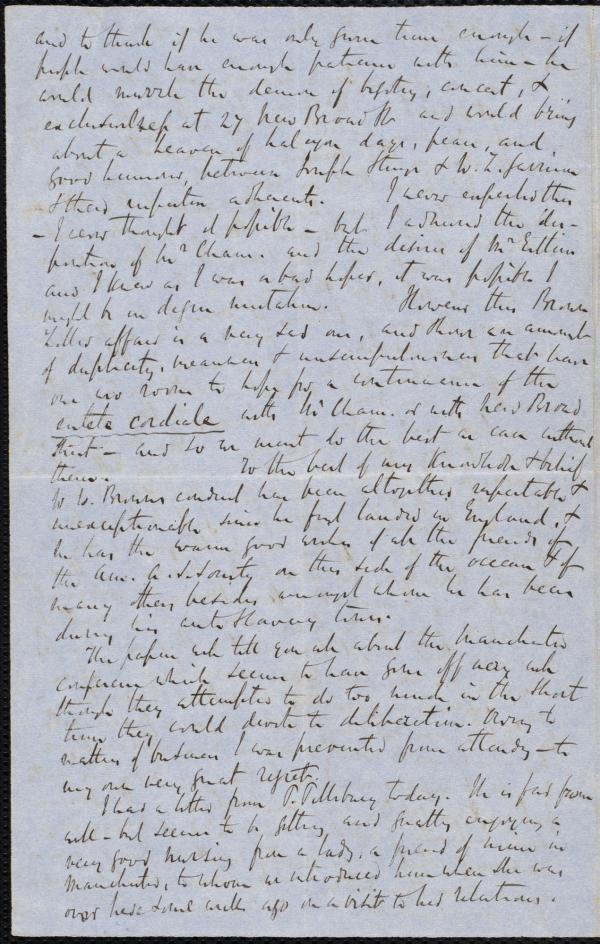 and to think if he was only given time enough – if
people would have enough patience with him – he
would muzzle the demon of bigotry, conceit, &
exclusiveness at 27 New Broad St and would bring
about a heaven of halcyon days, peace, and
good humour, between Joseph Sturge & W. L. Garrison
& their respective adherents. I never expected this
– I never thought it possible – but I admired the dis-
position of Mr Cham. and the desire of Mr Estlin
and I knew as I was a bad hoper, it was possible I
might be in degree mistaken. However this Brown
Letter affair is a very sad one, and shows an amount
of duplicity, meanness & unscrupulousness that leave
one no room to hope for a continuance of the
entete cordiale with Mr Cham. or with New Broad
Street – and so we must do the best we can without
them. To the best of my knowledge & belief
W. W. Browns conduct has been altogether respectable &
unexceptionable since he first landed in England, &
he has the warm good wishes of all the friends of
the Am. A. S. Society on this side of the ocean & of
many others besides amongst whom he has been
during his anti Slavery tours.
The papers will tell you all about the Manchester
conference which seems to have gone off very well
though they attempted to do too much in the short
time they could devote to deliberation. Owing to
matters of business I was prevented from attending – to
my own very great regret.
I had a letter from P. Pillsbury today. He is far from
well – but seems to be getting and greatly enjoying a
very good nursing from a lady, a friend of mine in
Manchester, to whom we introduced him when she was
over here some weeks ago on a visit to her relations.